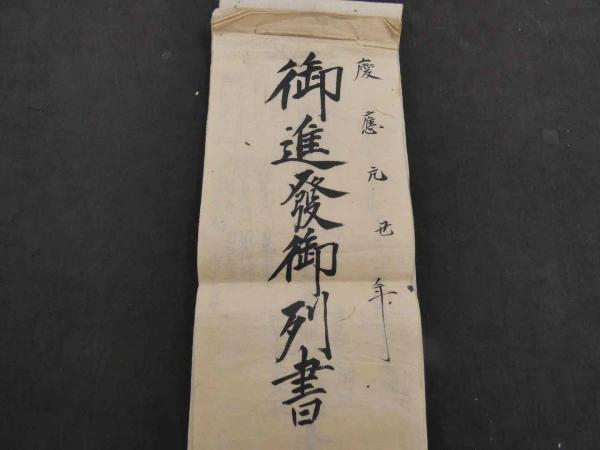 慶應元丑年
御進發御列書